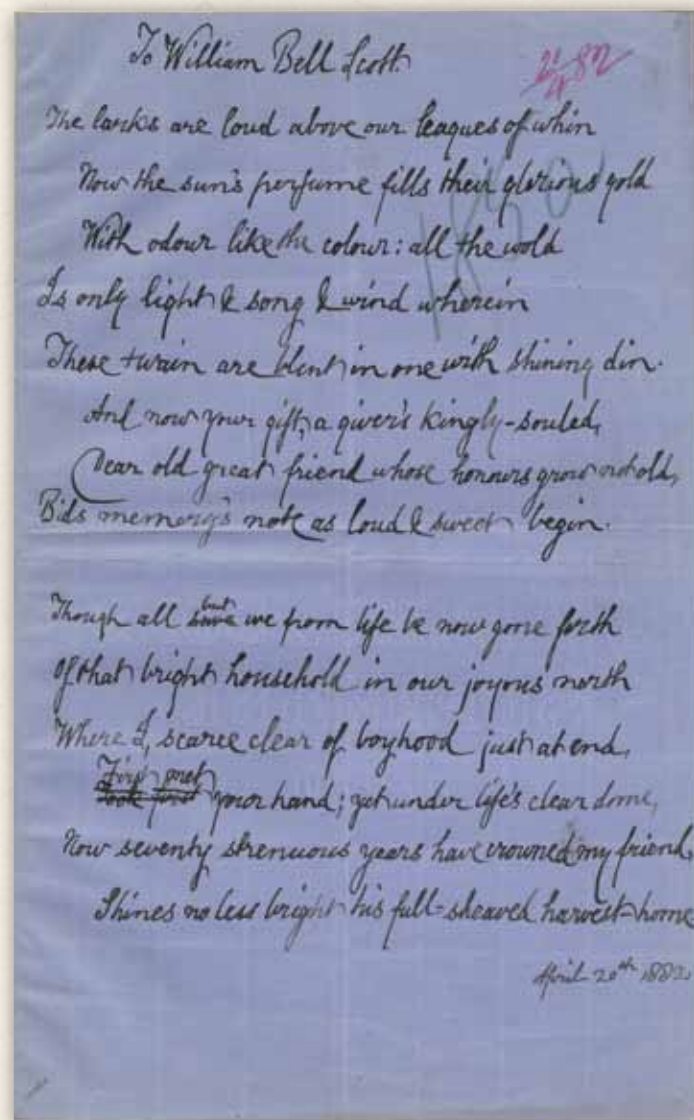 To William Bell Scott.
21/4 82
The larks are loud above our leagues of whin
Now the sun's perfume fills their glorious gold
With odour like the colour: all the wold
Is only light & song & wind wherein
These twain are blent in one with shining din.
And now your gift, a giver's kingly-souled,
Dear old great friend whose honours grow not old,
Bids memory's note as loud & sweet begin.
Though all save but we from life be now gone forth
Of that bright household in our joyous north
Where I, scarce clear of boyhood just at end,
First met
took first your hand; yet under life's clear dome,
Now seventy strenuous years have crowned my friend,
Shines no less bright his full-sheaved harvest-home
April 20th 1882